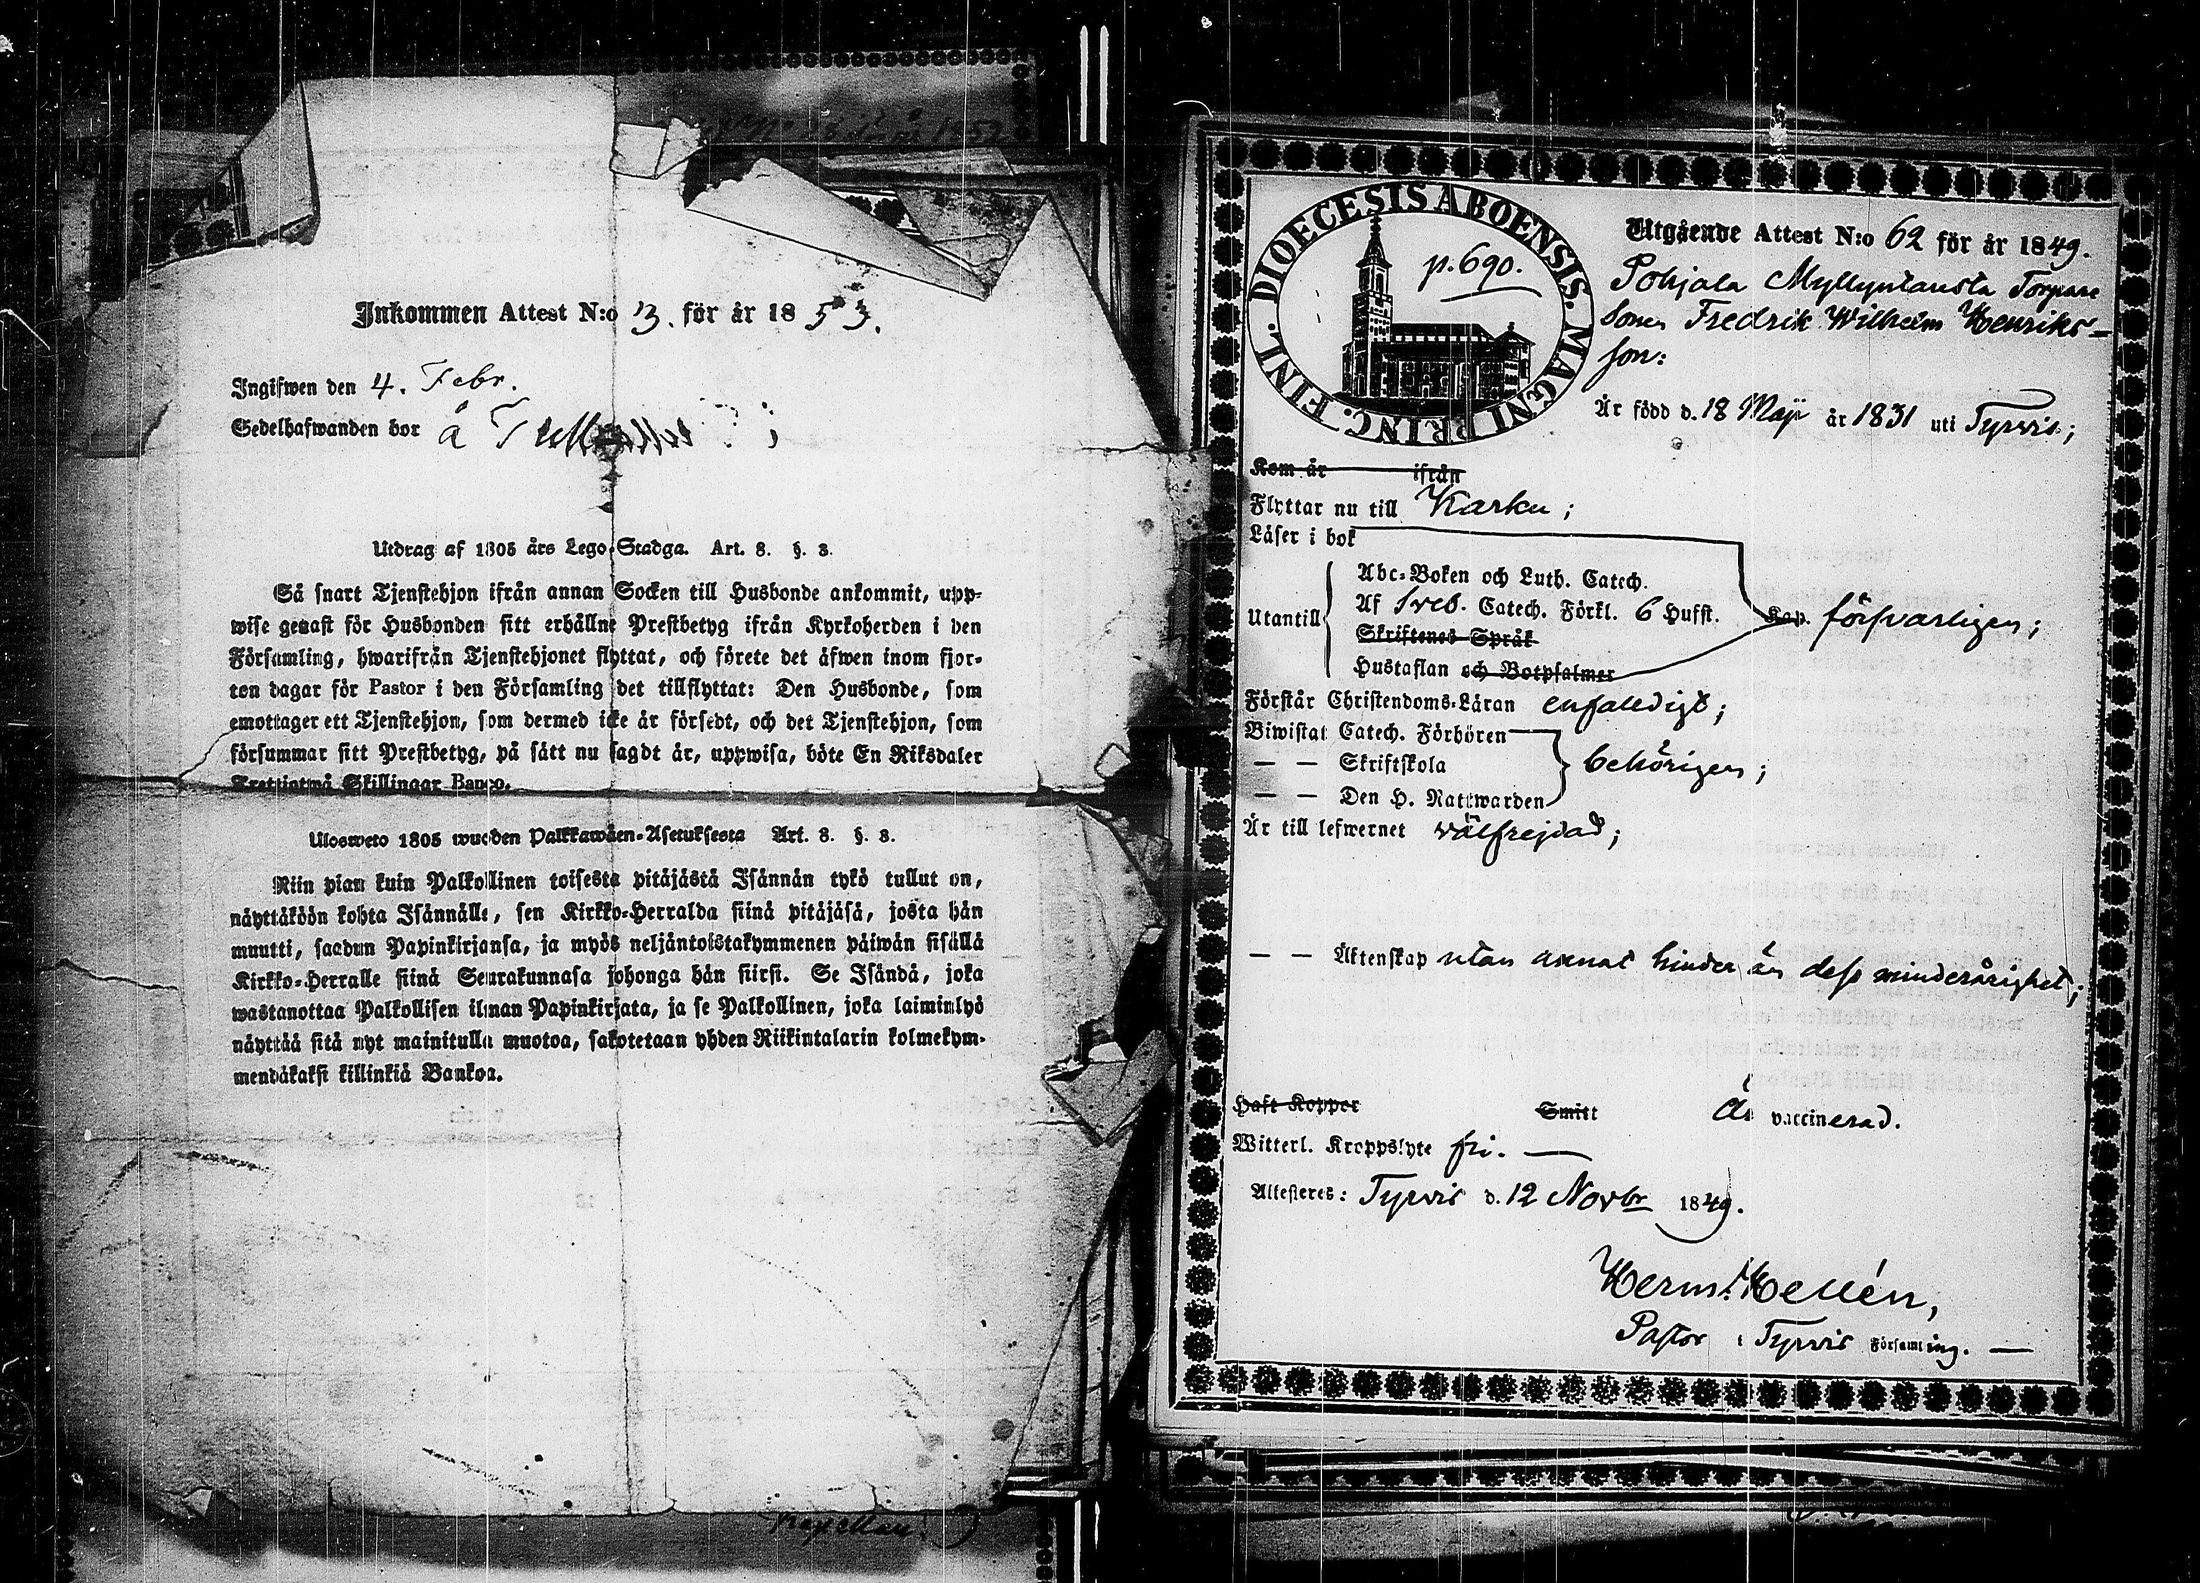 Inkommen Attest N:o 3. för år 1853.
Ingifwen den 4. Febr.
Sedelhafwanden bor å
Utdrag af 1805 års Lego-Stadga. Art. 8. §. 3.
Så snart Tjenstehjon ifrån annan Socken till Husbonde ankommit, upp-
wise genast för Husbonden sitt erhållne Prestbetyg ifrån Kyrkoherden i den
Församling, hwarifrån Tjenstehjonet flyttat, och förete det äfwen inom fjor-
ton dagar för Pastor i den Församling det tillflyttat: Den Husbonde, som
emottager ett Tjenstehjon, som dermed icke är försedt, och det Tjenstehjon, som
försummar sitt Prestbetyg, på sätt nu sagdt är, uppwisa, böte En Riksdaler
Trettiotwå Skillingar Banco.
Ulosweto 1805 wuoden Palkkawäen-Asetuksesta Art. 8. §. 3.
Niin pian kuin Palkollinen toisesta pitäjästä Isännän tykö tullut on,
näyttäköön kohta Isännälle, sen Kirkko-Herralda siinä pitäjäsä, josta hän
muutti, saadun Papinkirjansa, ja myös neljäntoistakymmenen päiwän sisällä
Kirkko-Herralle siinä Seurakunnasa johonga hän siirsi. Se Isändä, joka
wastanottaa Palkollisen ilman Papinkirjata, ja se Palkollinen, joka laiminlyö
näyttää sitä nyt mainitulla muotoa, sakotetaan yhden Riikintalarin kolmekym-
mendäkaksi killinkiä Bankoa.
DIOECESIS ABOENSIS. MAGNI PRINC. FINL.
p. 690.
Utgående Attest N:o 62 för år 1849.
Pohjala Myllyntausta Torpare
Sonen Fredrik Wilhelm Henriks-
son:
Är född d. 18 Maji år 1831 uti Tyrvis;
Kom år ifrån
Flyttar nu till Karku;
Läser i bok
Abc-Boken och Luth. Catech.
Utantill Af Sveb. Catech. Förkl. 6 Hufst. Kap. försvarligen;
Skriftenes Språk
Hustaflan och Botpsalmer
Förstår Christendoms-Läran enfaldigt;
Biwistat Catech. Förhören
— — Skriftskola behörigen;
— — Den H. Nattwarden
Är till lefwernet välfrejdad;
— — Äktenskap utan annat hinder än dess minderårighet;
Haft Koppor Smitt Är vaccinerad.
Witterl. Kroppslyte fri. —
Attesteres: Tyrvis d. 12 Novbr 1849.
Herm. Hellén,
Pastor i Tyrvis Församling. —